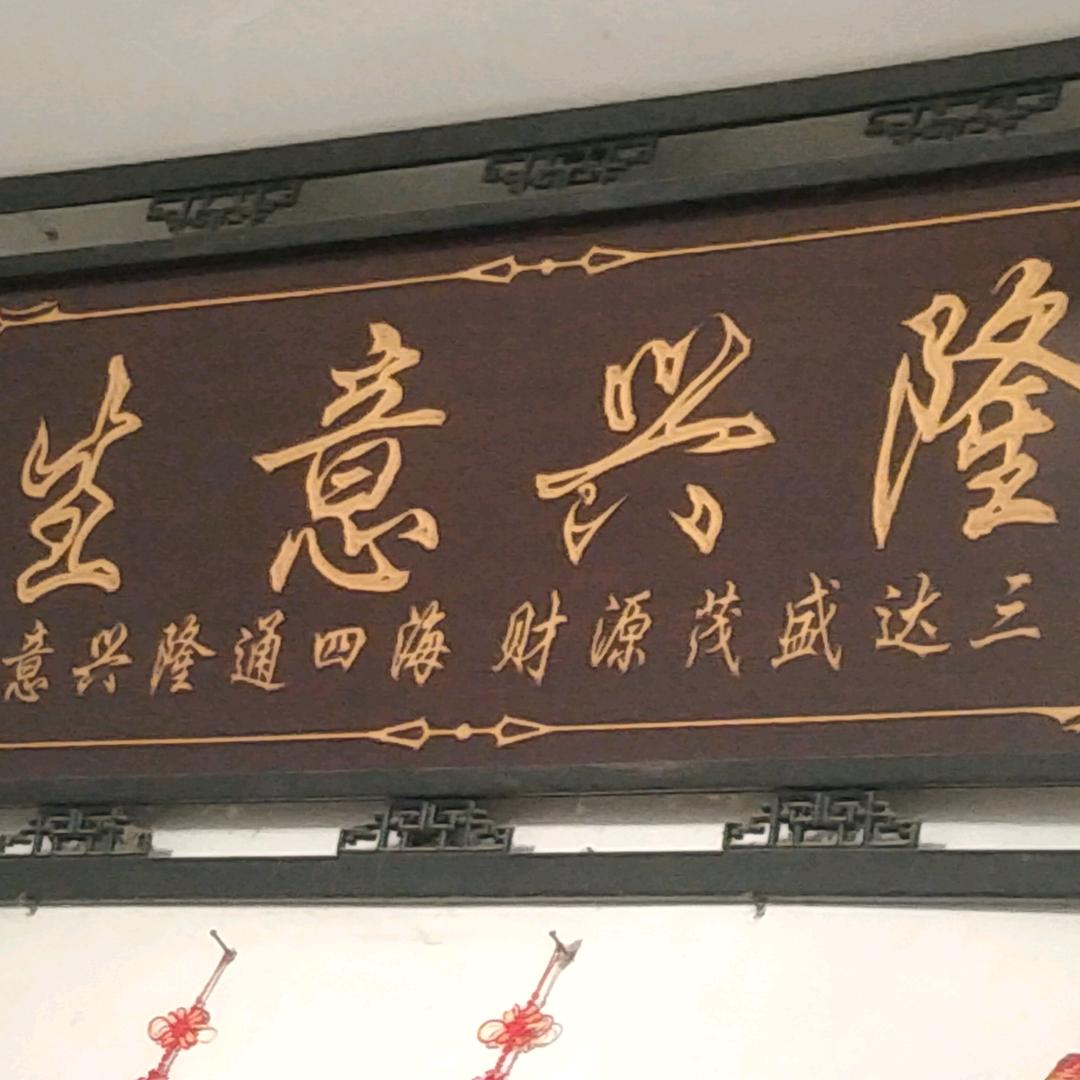 生意兴隆
意兴隆通四海财源茂盛达三